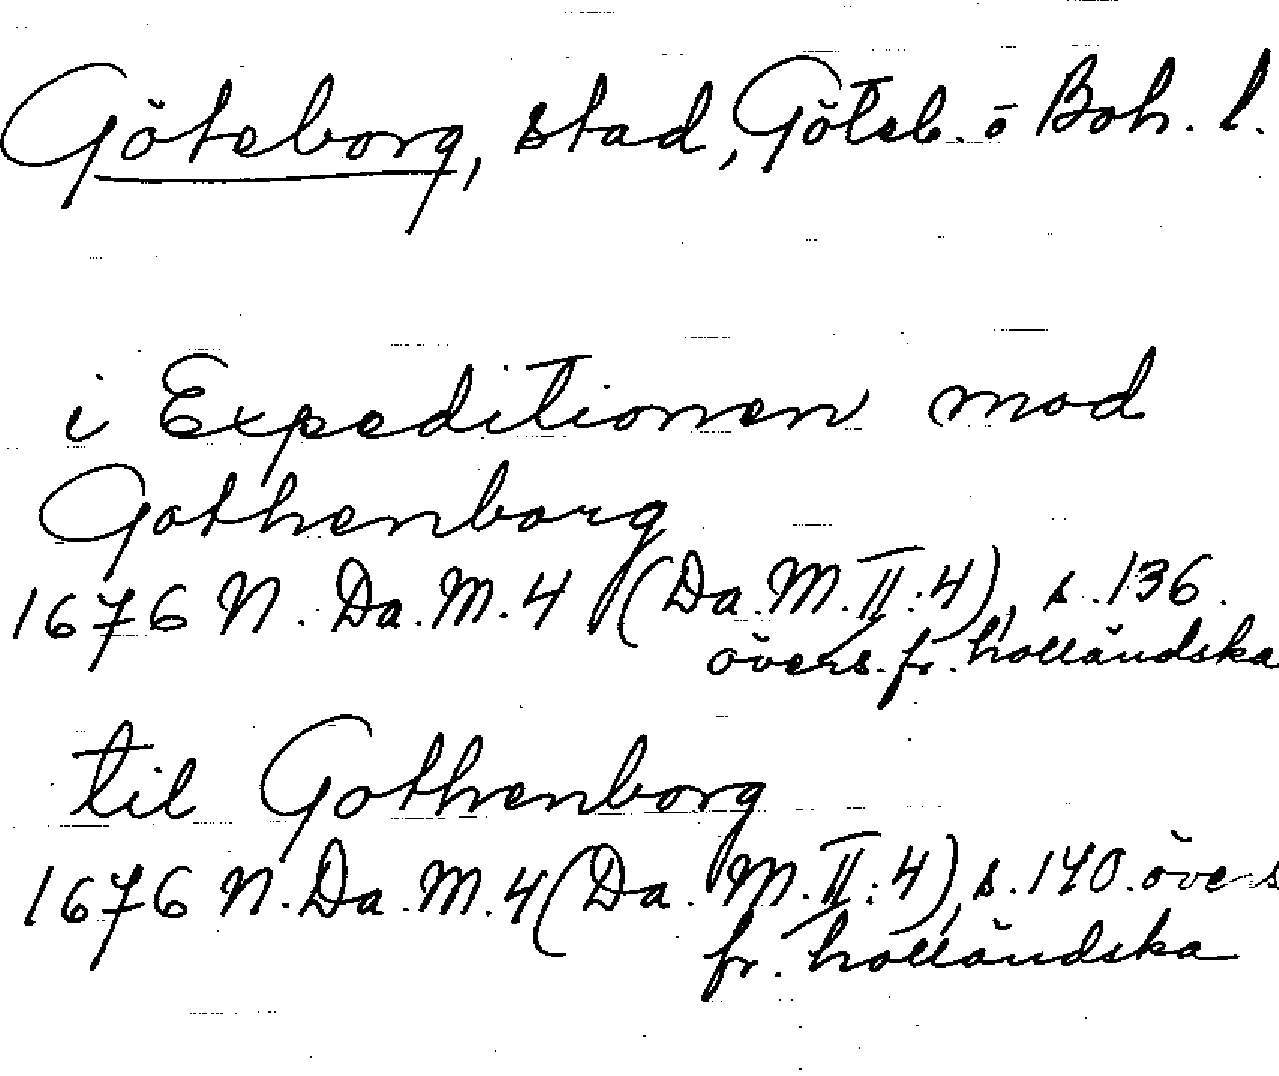 Göteborg, stad, Göteb. o Boh. l.
i Expeditionen mod
Gothenborg
1676 N. Da. M. 4 (Da. M. II: 4), s. 136.
övers. fr. holländska
til Gothenborg
1676 N. Da. M. 4 (Da. M. II: 4), s. 140. övers
fr. holländska